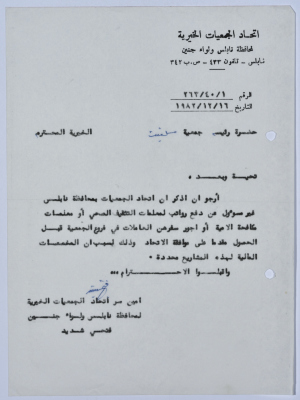 اتحاد الجمعيات الخيرية
لمحافظة نابلس ولواء جنين
نابلس - تلفون ٤٣٣ - ص.ب ٣٤٢
الرقم ٢٦٢/٤٠/١
التاريخ ١٩٨٢/١٢/١٦
حضرة رئيس جمعية الخيرية المحترم
تحية وبعد ،
أرجو ان اذكر ان اتحاد الجمعيات بمحافظة نابلس
غير مسؤول عن دفع رواتب لمعلمات التثقيف الصحي أو معلمات
مكافحة الامية أو اجور سفرهن العاملات في فروع الجمعية قبل
الحصول مقدما على موافقة الاتحاد وذلك لسبب ان المخصصات
المالية لهذه المشاريع محددة ٠
واقبلوا الاحترام ،،،
امين سر اتحاد الجمعيات الخيرية
لمحافظة نابلس ولواء جنين
فتحي شديد